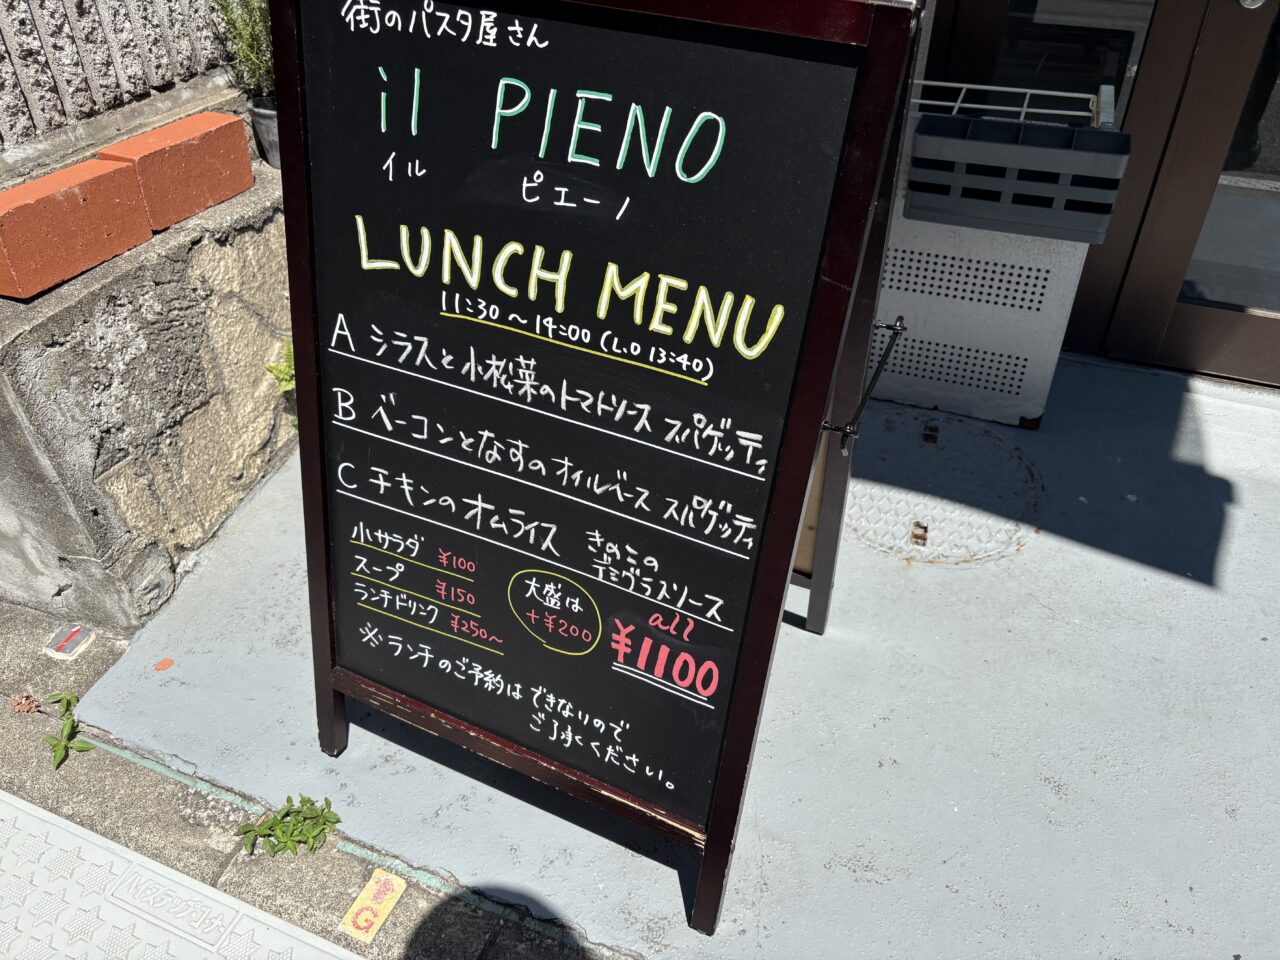 街のパスタ屋さん
il PIENO
イル ピエーノ
LUNCH MENU
11:30〜14:00(L.O 13:40)
A シラスと小松菜のトマトソース スパゲッティ
B ベーコンとなすのオイルベース スパゲッティ
C チキンのオムライス きのこの
デミグラスソース
小サラダ ¥100
スープ ¥150
ランチドリンク ¥250〜
大盛は
+¥200
all
¥1100
※ランチのご予約はできないので
ご了承ください。
G